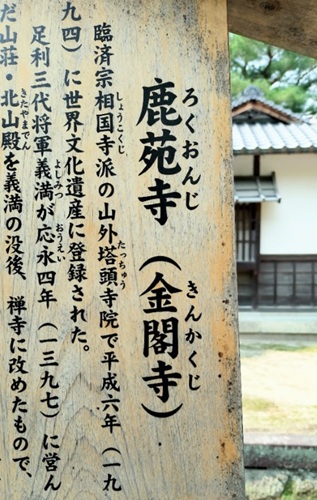 鹿苑寺（金閣寺）
ろくおんじ
きんかくじ
臨済宗相国寺派の山外塔頭寺院で平成六年（一九
しょうこくじ
たっちゅう
九四）に世界文化遺産に登録された。
足利三代将軍義満が応永四年（一三九七）に営ん
よしみつ
おうえい
だ山荘・北山殿を義満の没後、禅寺に改めたもので、
きたやまでん